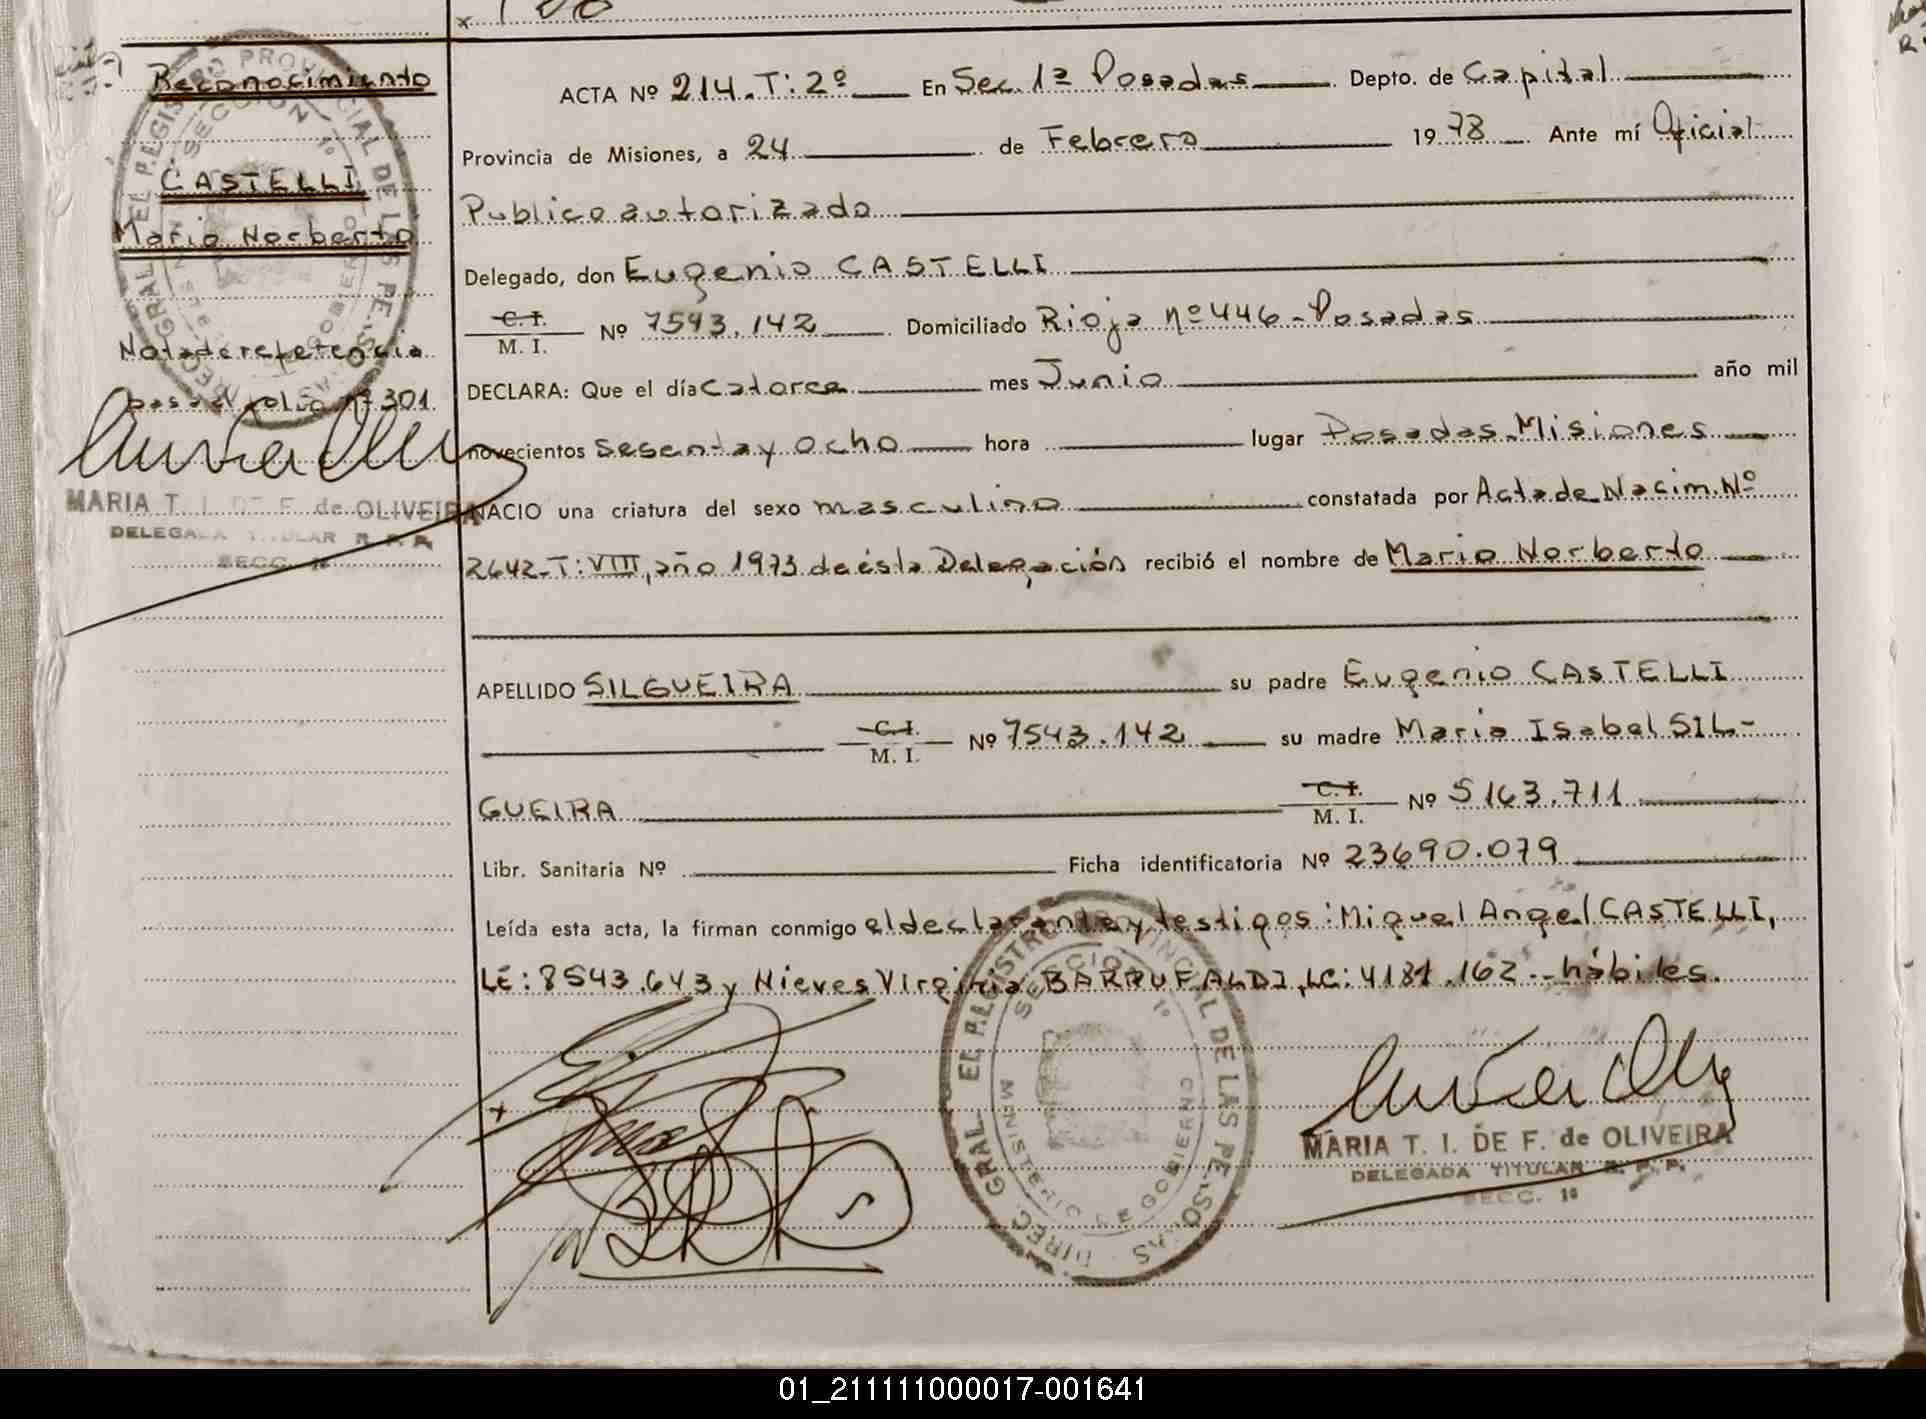 Reconocimiento
CASTELLI
Mario Norberto
Nota de referencia
pasa al folio nº 301
MARIA T. I. DE F. de OLIVEIRA
DELEGADA TITULAR R. P. P.
SECC. 1ª
ACTA Nº 214.T:2º En Sec. 1ª Posadas Depto. de Capital
Provincia de Misiones, a 24 de Febrero 1978 Ante mí Oficial
Publico autorizado
Delegado, don Eugenio CASTELLI
C.I.
M. I. Nº 7543.142 Domiciliado Rioja nº 446-Posadas
DECLARA: Que el día catorce mes Junio año mil
novecientos sesenta y ocho hora lugar Posadas-Misiones
NACIO una criatura del sexo masculino constatada por Acta de Nacim. Nº
2642-T:VIII, año 1973 de ésta Delegación recibió el nombre de Mario Norberto
APELLIDO SILGUEIRA su padre Eugenio CASTELLI
C.I.
M. I. Nº 7543.142 su madre Maria Isabel SIL-
GUEIRA C.I.
M. I. Nº 5163.711
Libr. Sanitaria Nº Ficha identificatoria Nº 23690.079
Leída esta acta, la firman conmigo el declarante y testigos: Miguel Angel CASTELLI,
LE: 8543.643 y Nieves Virginia BARRUFALDI, LC: 4181.162-- hábiles.
DIREC. GRAL. EL P. REGISTRO PROVINCIAL DE LAS PERSONAS
SECCION 1º
MINISTERIO DE GOBIERNO
MARIA T. I. DE F. de OLIVEIRA
DELEGADA TITULAR R. P. P.
SECC. 1ª
01_211111000017-001641